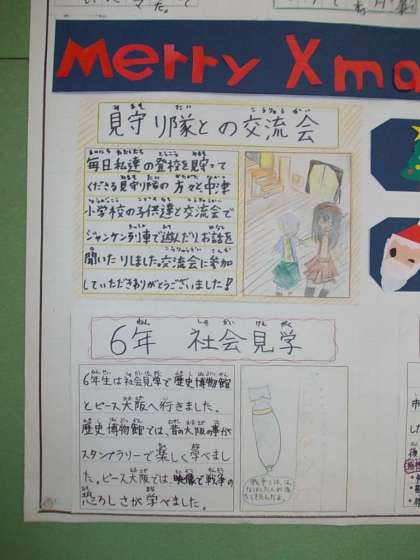 Merry Xma
見守り隊との交流会
毎日私達の登校を見守って
くださる見守り隊の方々と中津
小学校の子供達と交流会で
ジャンケン列車で遊んだりお話を
聞いたりしました。交流会に参加
していただきありがとうございました！
6年 社会見学
6年生は社会見学で歴史博物館
とピース大阪へ行きました。
歴史博物館では、昔の大阪の事が
スタンプラリーで楽しく学べまし
た。ピース大阪では、映像で戦争の
恐ろしさが学べました。